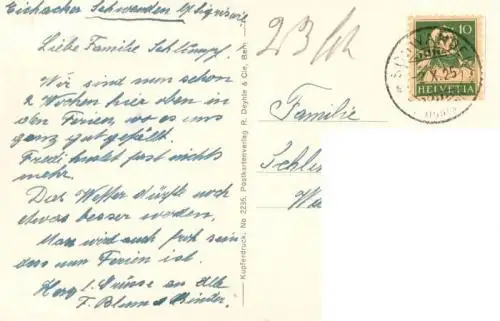 Eichacher Schwanden b/Sigriswil
Liebe Familie Schlumpf.
Wir sind nun schon
2 Wochen hier oben in
den Ferien, wo es uns
ganz gut gefällt.
Fredi hustet fast nichts
mehr.
Das Wetter dürfte noch
etwas besser werden.
Man wird auch froh sein
dass nun Ferien ist.
Herzl. Grüsse an alle
F. Blum & Kinder.
Kupferdruck, No 2235, Postkartenverlag R. Deyhle & Cie, Bern
10
HELVETIA
X. 25
Familie